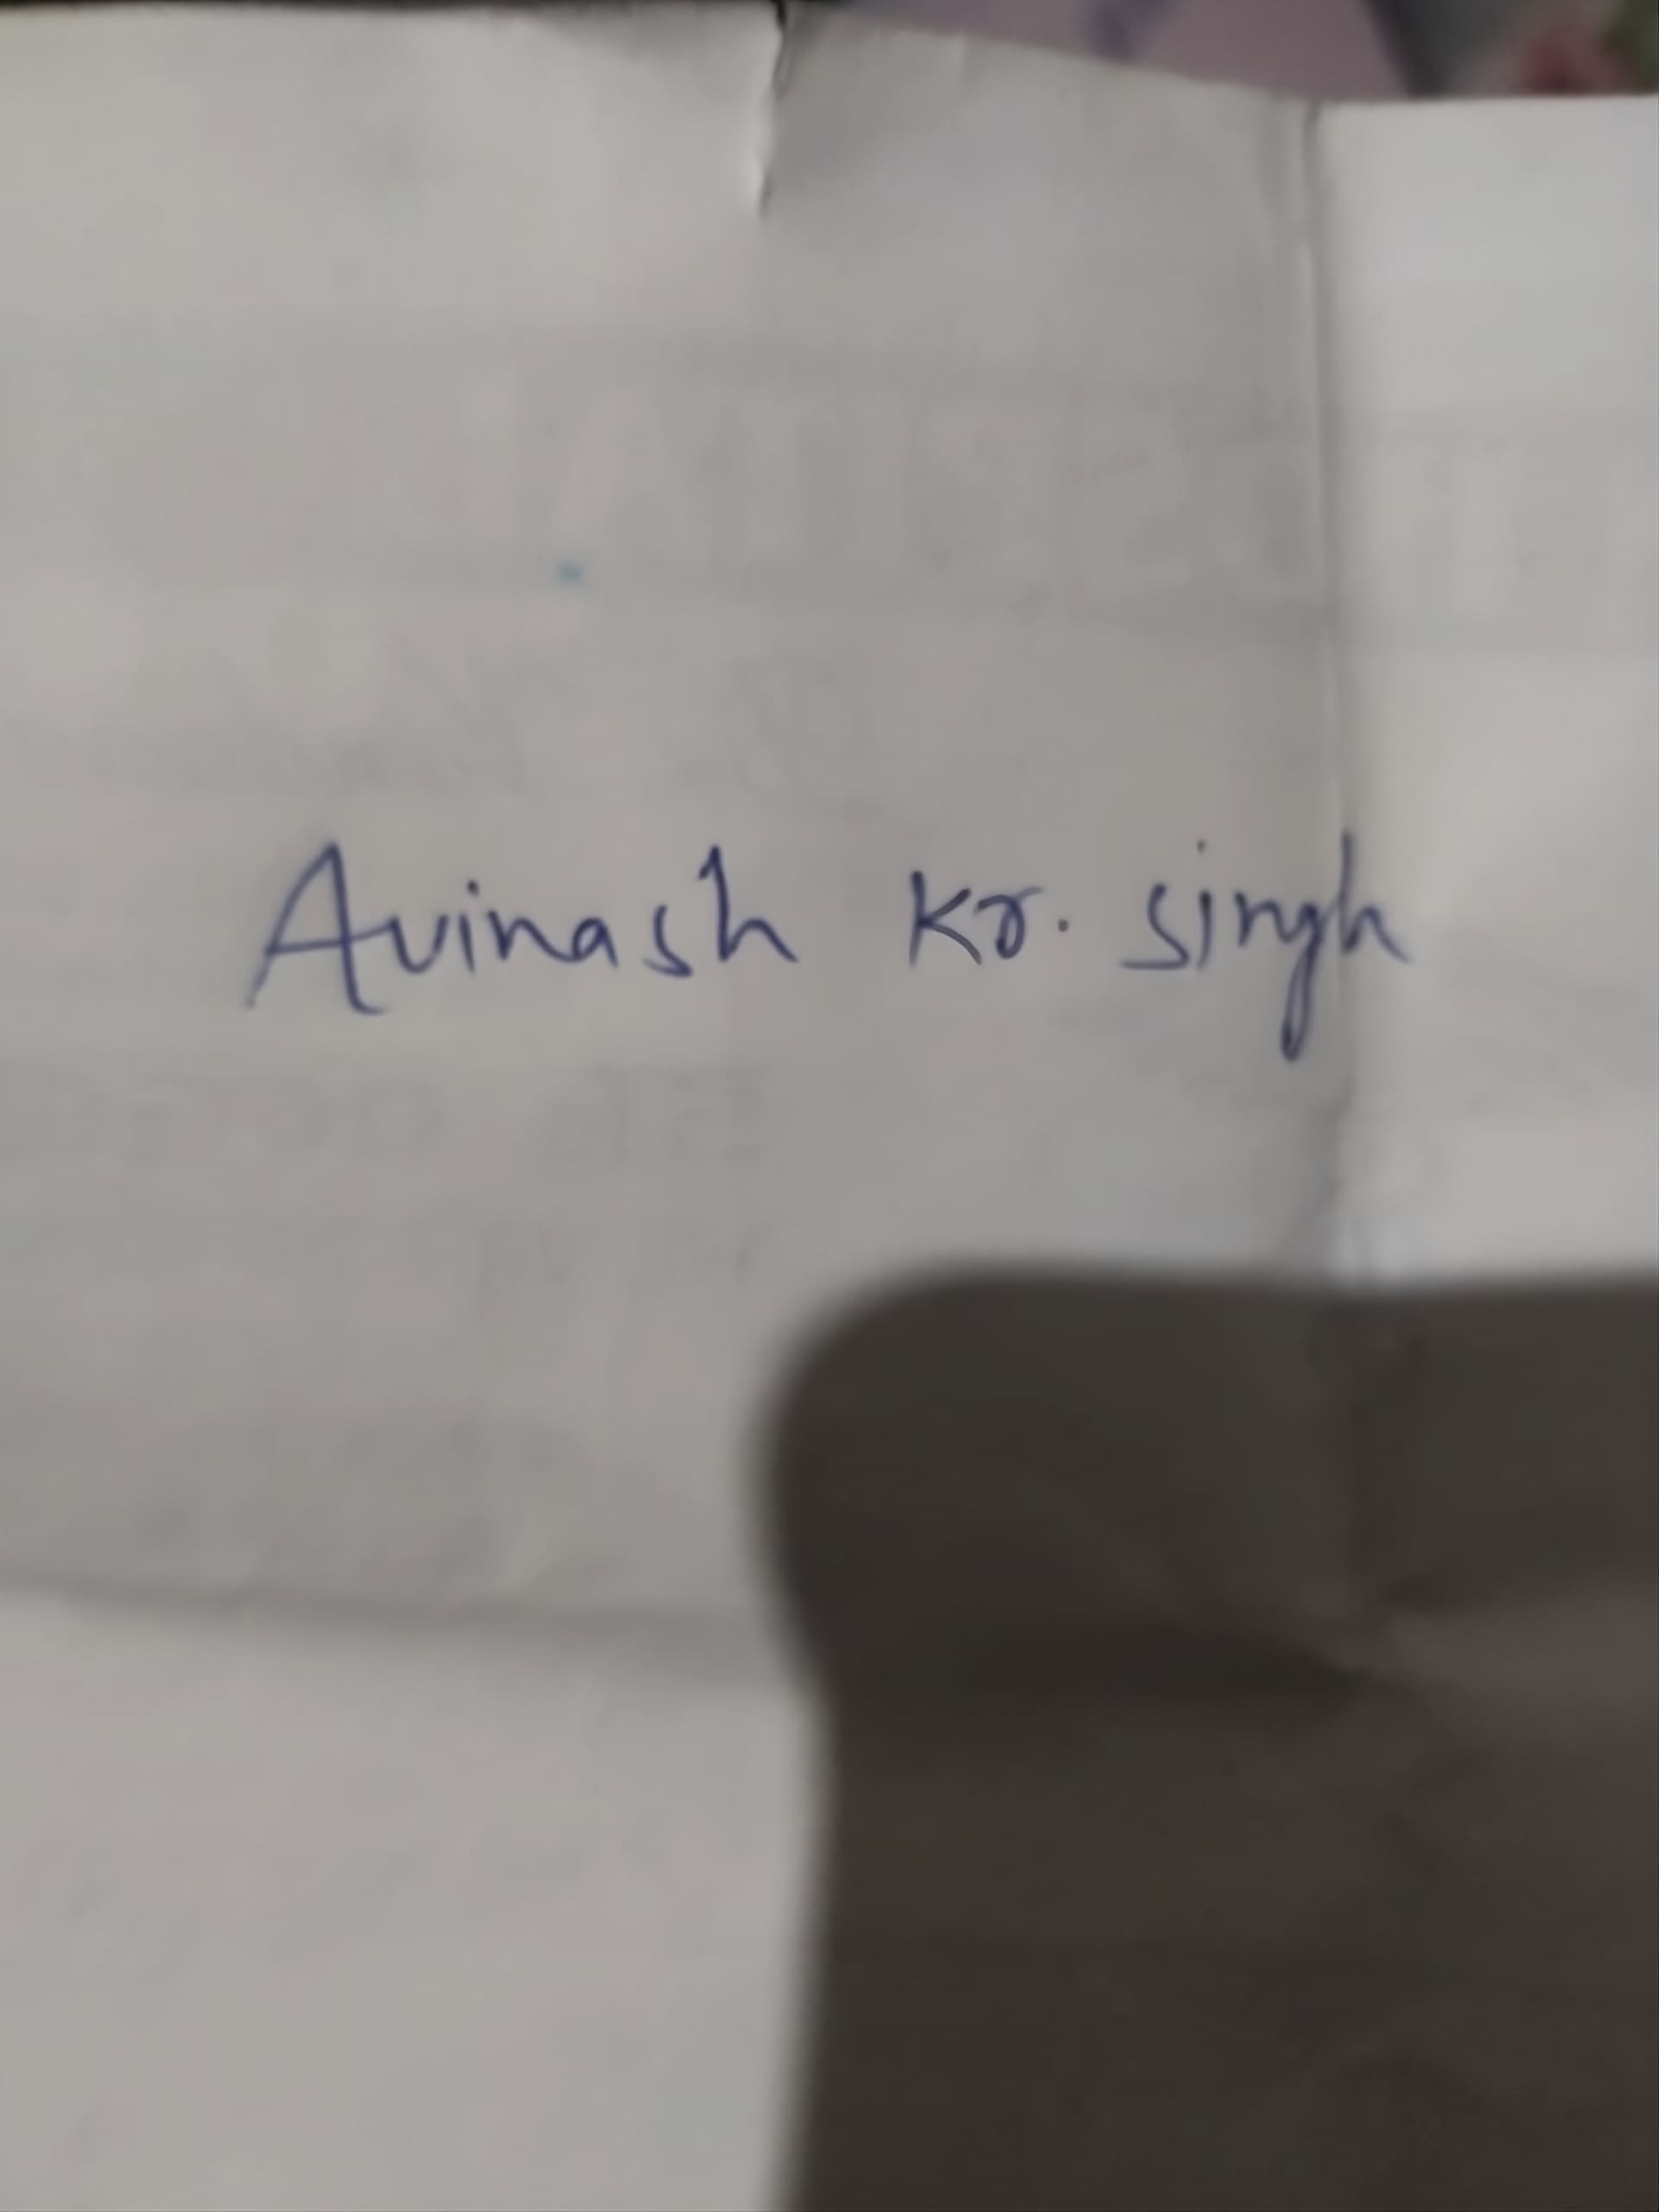 Avinash Kr. singh